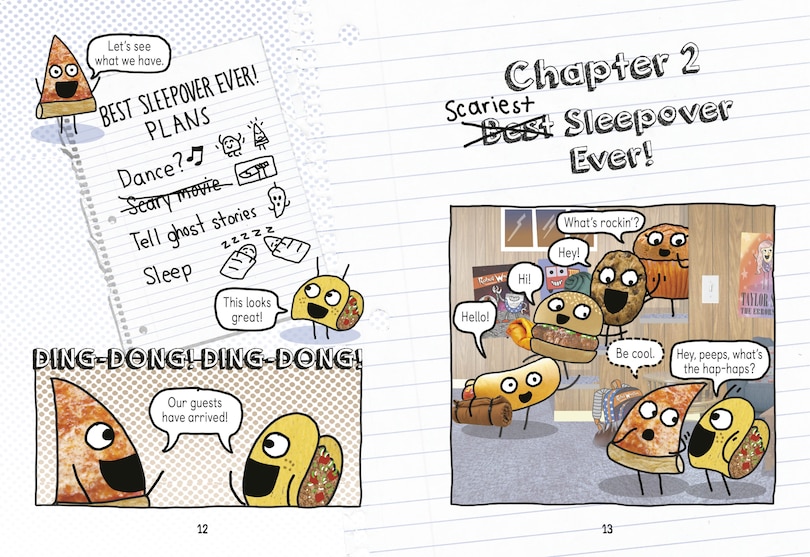 Let's see
what we have.
BEST SLEEPOVER EVER!
PLANS
Dance?
Scary movie
Tell ghost stories
zzzzz
Sleep
This looks
great!
DING-DONG! DING-DONG!
Our guests
have arrived!
12
Chapter 2
Scariest
Best Sleepover
Ever!
What's rockin'?
Hey!
Hi!
Hello!
TAYLOR S
THE ERRORS
Be cool.
Hey, peeps, what's
the hap-haps?
13